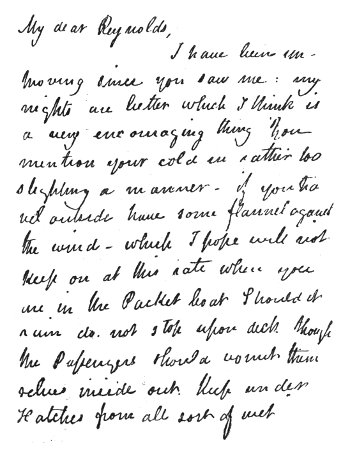 My dear Reynolds,
I have been im-
proving since you saw me: my
nights are better which I think is
a very encouraging thing You
mention your cold in rather too
slighting a manner - if you tra
vel outside have some flannel against
the wind - which I hope will not
keep on at this rate when you
are in the Packet boat Should it
rain do not stop upon deck though
the Passengers should vomit them
selves inside out. Keep under
Hatches from all sort of wet